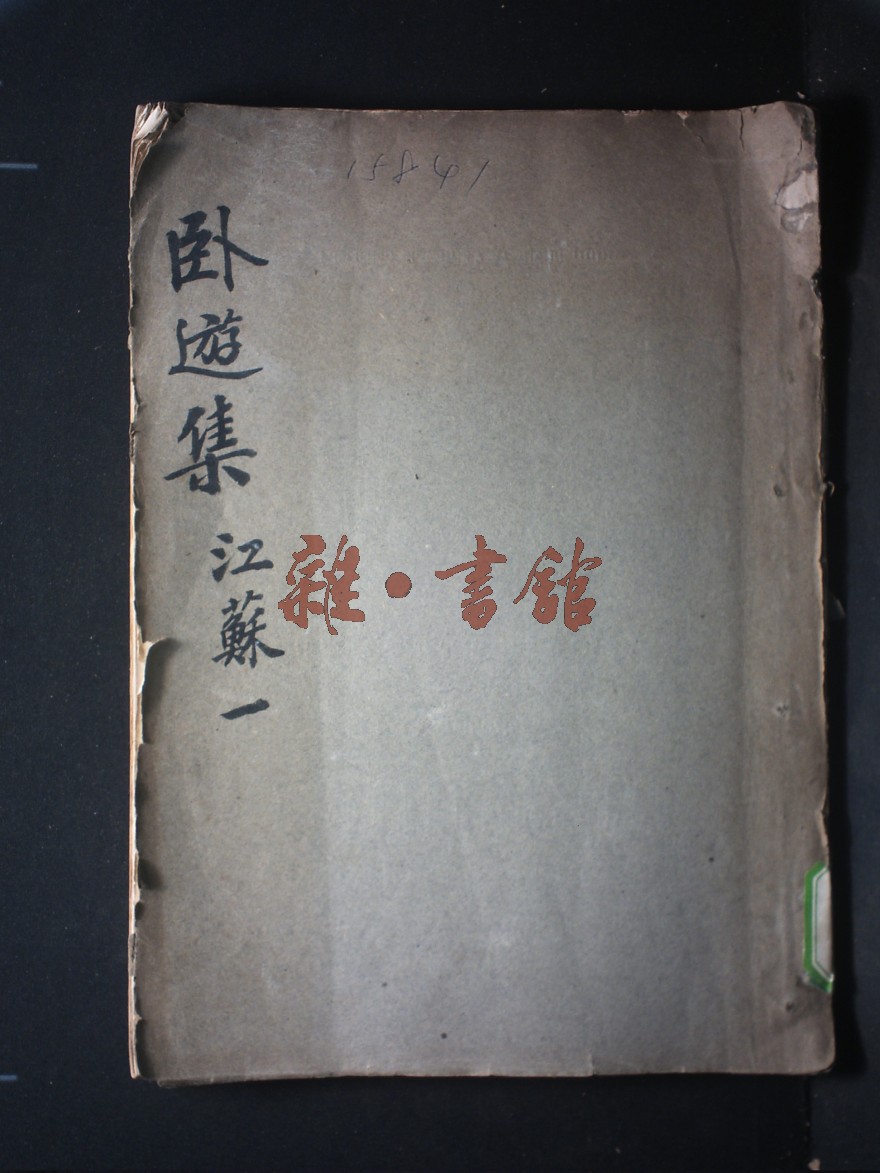 15841
卧遊集 江蘇一
雜·書館